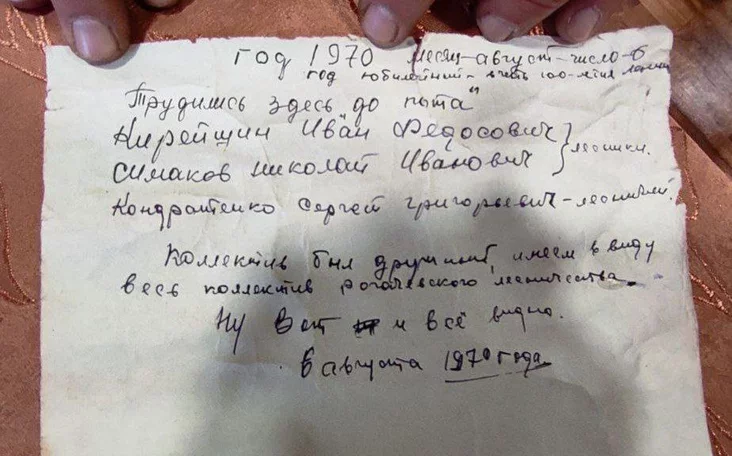 год 1970 месяц-август-число-6
год юбилейный - в честь 100-летия Ленина
Трудились здесь до пота"
Кирейшин Иван Федосович
Симаков Николай Иванович } лесники.
Кондратенко Сергей Григорьевич - лесничий.
Коллектив был дружный, имеем в виду
весь коллектив Рогачевского лесничества.
Ну Вот и всё видно.
6 августа 1970 года.